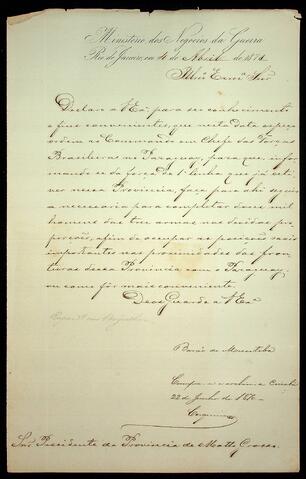 Ministerio dos Negocios da Guerra
Rio de Janeiro, em 4 de Abril de 1870
Illmo Exmo Snr
Declaro a V Exa, para seu conhecimento
e fins convenientes, que nesta data expeço
ordem ao Commando em Chefe das Forças
Brasileiras no Paraguay, para que, infor-
mando-se da força de 1ª linha que já esti-
ver nessa Provincia, faça para ahi seguir
a necessaria para completar dous mil
homens das tres armas nas devidas pro-
porções, afim de occupar as posições mais
importantes nas proximidades das fron-
teiras dessa Provincia com o Paraguay,
ou como fôr mais conveniente.
Deos Guarde a V Exa
Barão de Muritiba
Cumpra-se e
22 de Junho de 1870
Snr. Presidente da Provincia de Matto Grosso